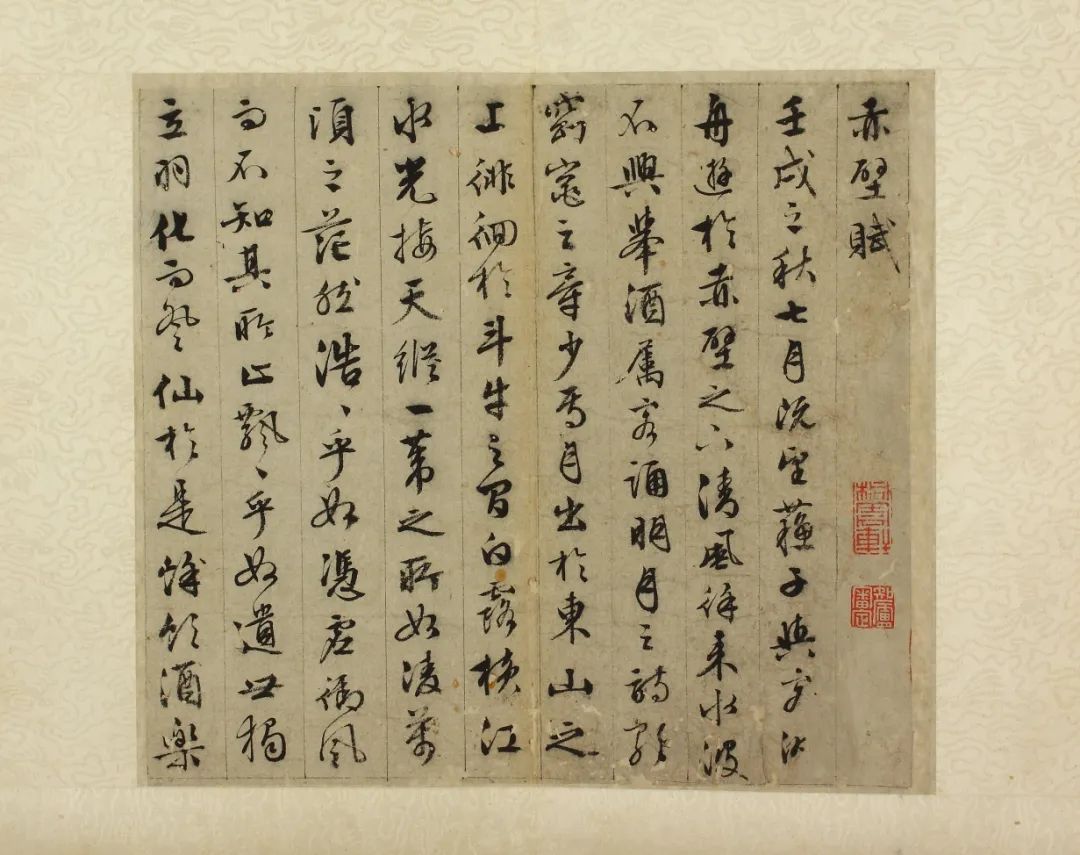 赤壁賦
壬戌之秋七月既望蘇子與客泛
舟遊於赤壁之下清風徐來水波
不興舉酒屬客誦明月之詩歌
窈窕之章少焉月出於東山之
上徘徊於斗牛之間白露橫江
水光接天縱一葦之所如凌萬
頃之茫然浩〻乎如憑虛御風
而不知其所止飄〻乎如遺世獨
立羽化而登仙於是飲酒樂